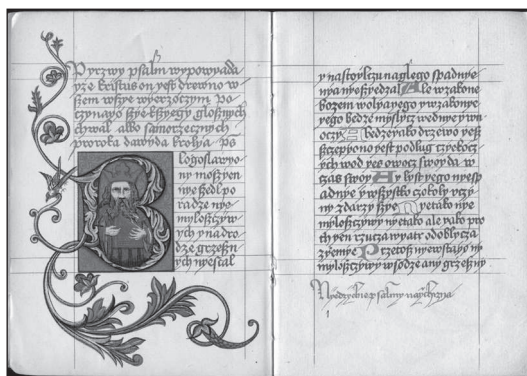 Pyrzwy psalm wypowyada
yze kristus on yest drzewno w
szem wszye wyerzoczym Po
czynayo szye kszyegy glosznych
chwal albo samorzecznych
proroka dawyda krolya ps
Blogoslawyo
ny mosz yen
nye szedl po
radze nye
myloszczyw
ych y na dro
dze grzeszn
ych nye stal
y na stoylczu naglego spadnye
nya nye szyedzal Ale w zakone
bozem wolya yego y w zakonye
yego bedze myslycz we dnye y w n
oczy bedze yako drzewo yesz
szczepyono yest podlug czyekocz
ych wod yez owocz swoy da w
czas swoy A ly st yego nye sp
adnye y wszystko czokoly vczy
ny zdarzy szye Nye tako nye
myloszczywy nye tako ale yako pro
ch yen rzucza wyatr od oblycza
zyemye Przetosz nye wstayo ny
myloszczywy w sodze any grzeszny